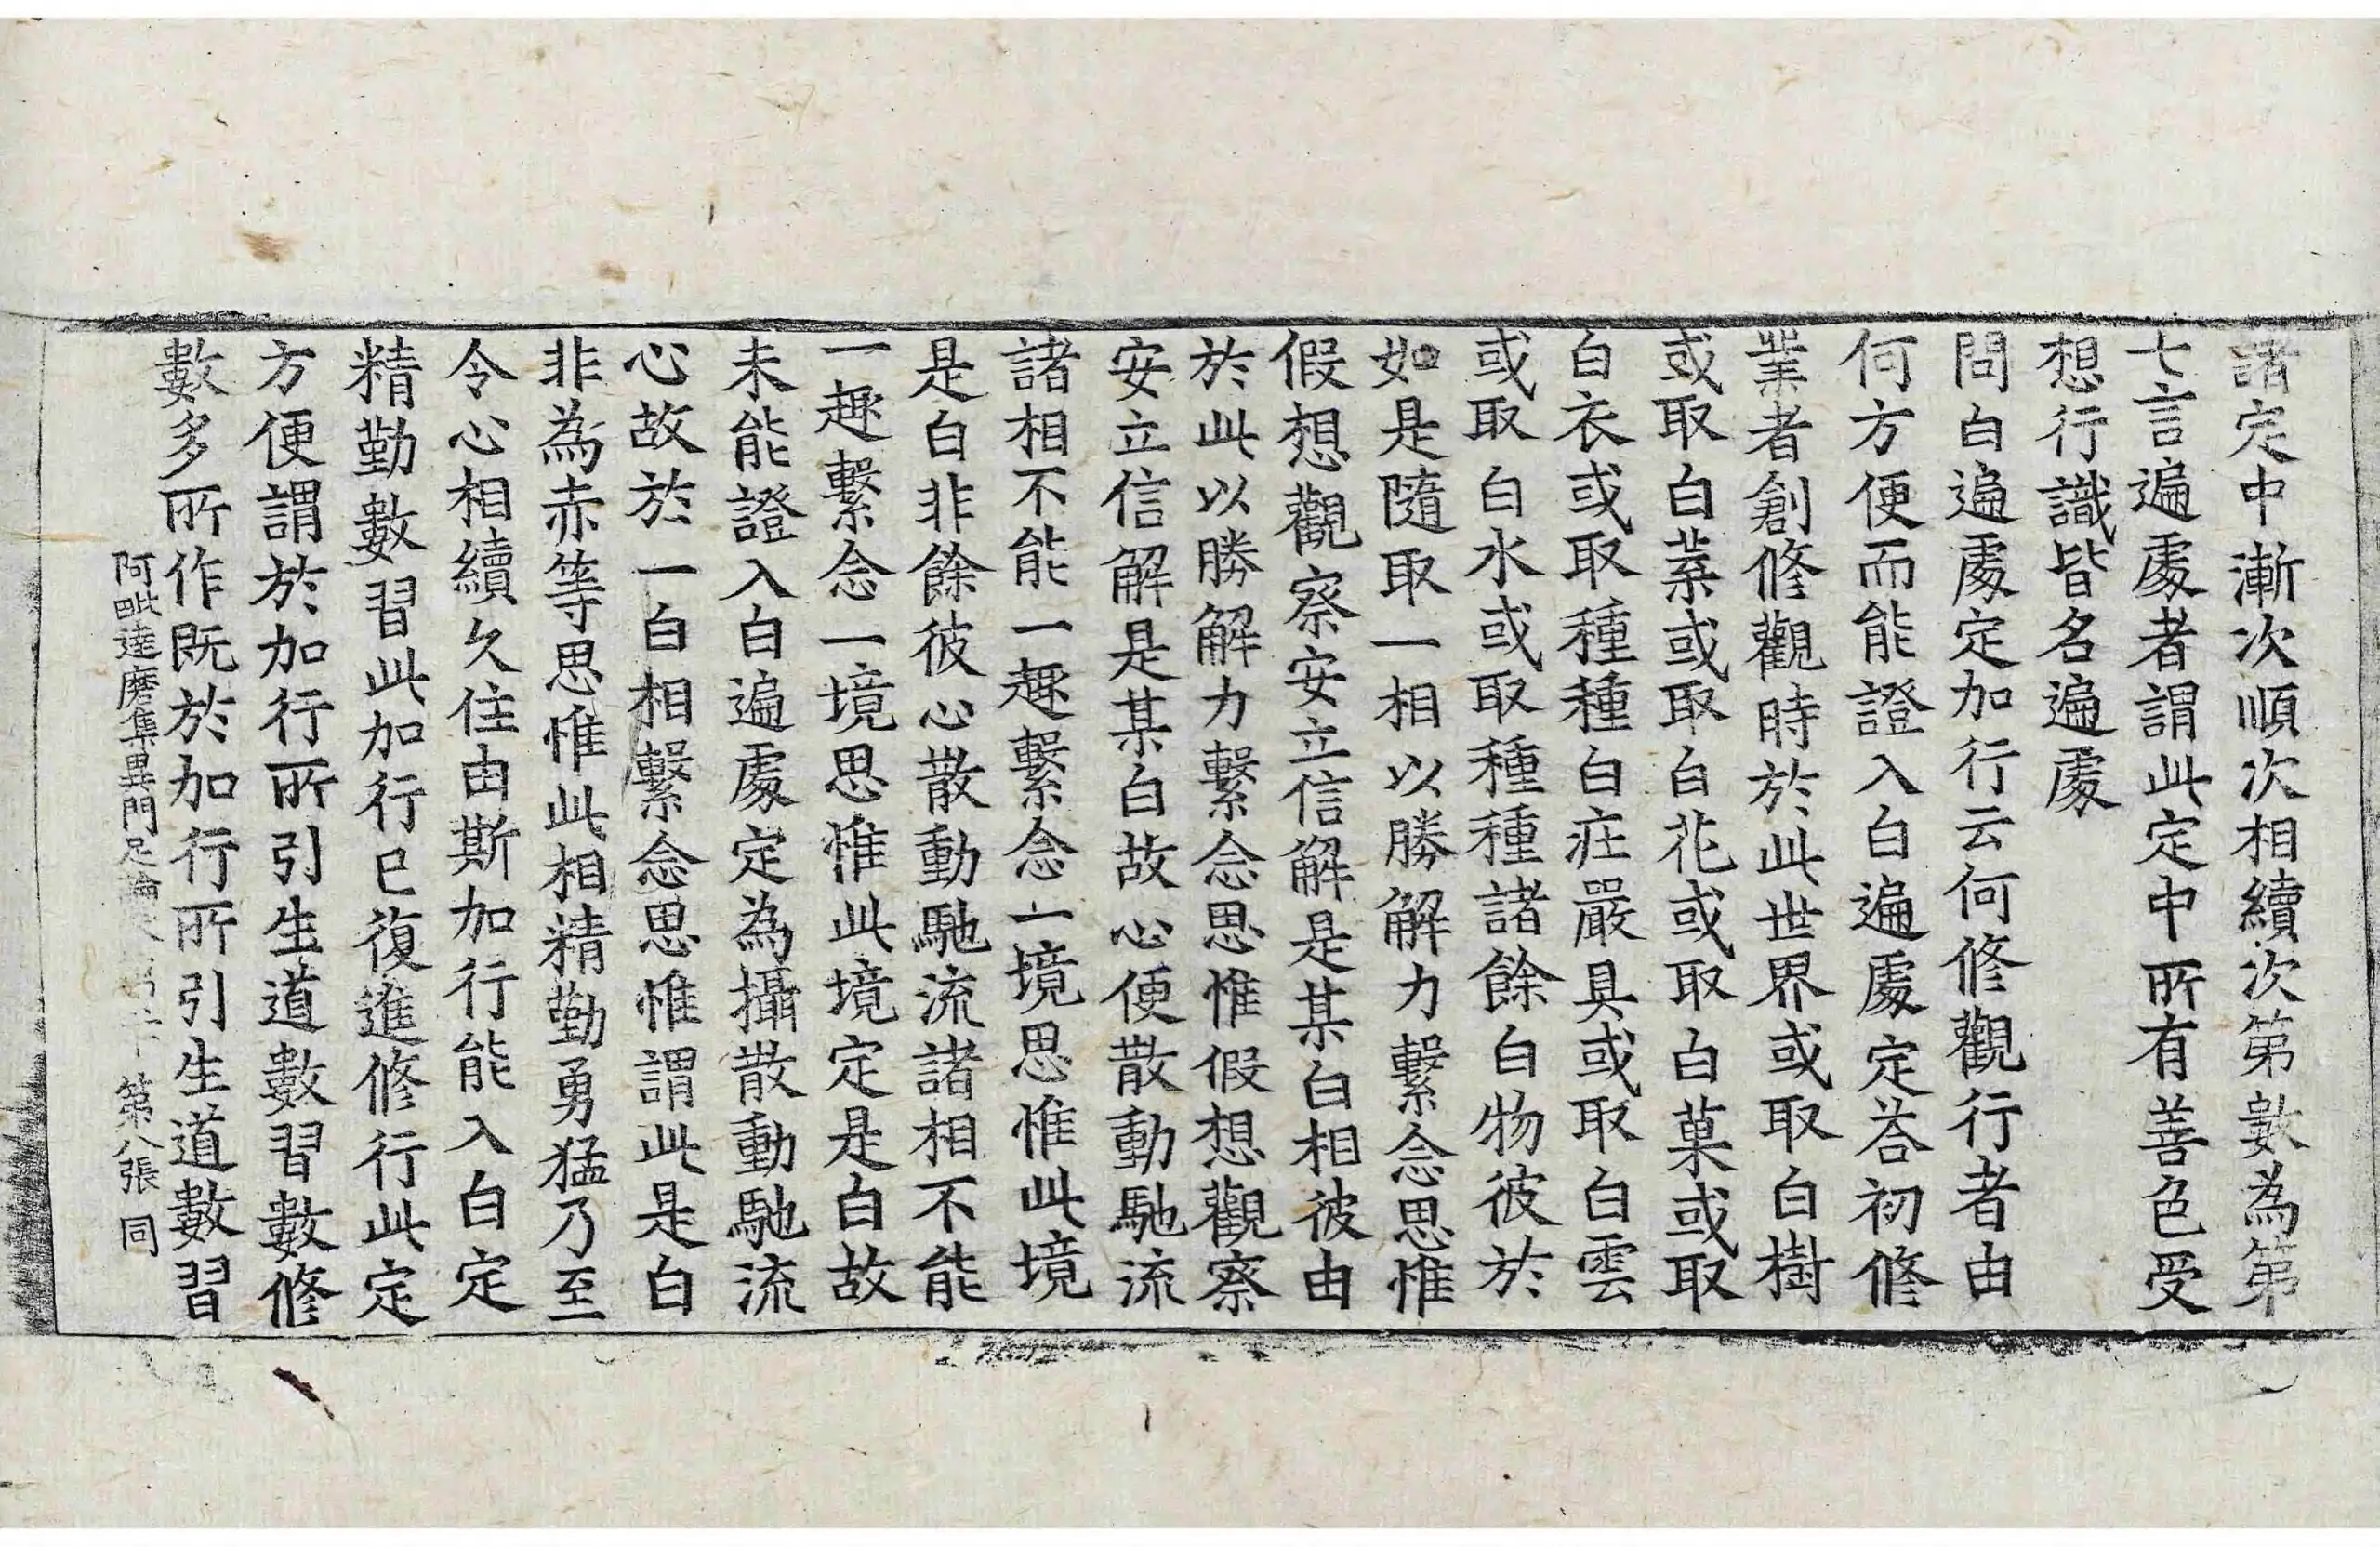 諸定中漸次順次相續次第數為第
七言遍處者謂此定中所有善色受
想行識皆名遍處
問白遍處定加行云何修觀行者由
何方便而能證入白遍處定荅初修
業者創修觀時於此世界或取白樹
或取白葉或取白花或取白菓或取
白衣或取種種白庄嚴具或取白雲
或取白水或取種種諸餘白物彼於
如是隨取一相以勝解力繫念思惟
假想觀察安立信解是某白相彼由
於此以勝解力繫念思惟假想觀察
安立信解是某白故心便散動馳流
諸相不能一趣繫念一境思惟此境
是白非餘彼心散動馳流諸相不能
一趣繫念一境思惟此境定是白故
未能證入白遍處定為攝散動馳流
心故於一白相繫念思惟謂此是白
非為赤等思惟此相精勤勇猛乃至
令心相續久住由斯加行能入白定
精勤數習此加行已復進修行此定
方便謂於加行所引生道數習數修
數多所作既於加行所引生道數習
阿毗達磨集異門足論 第八張 同